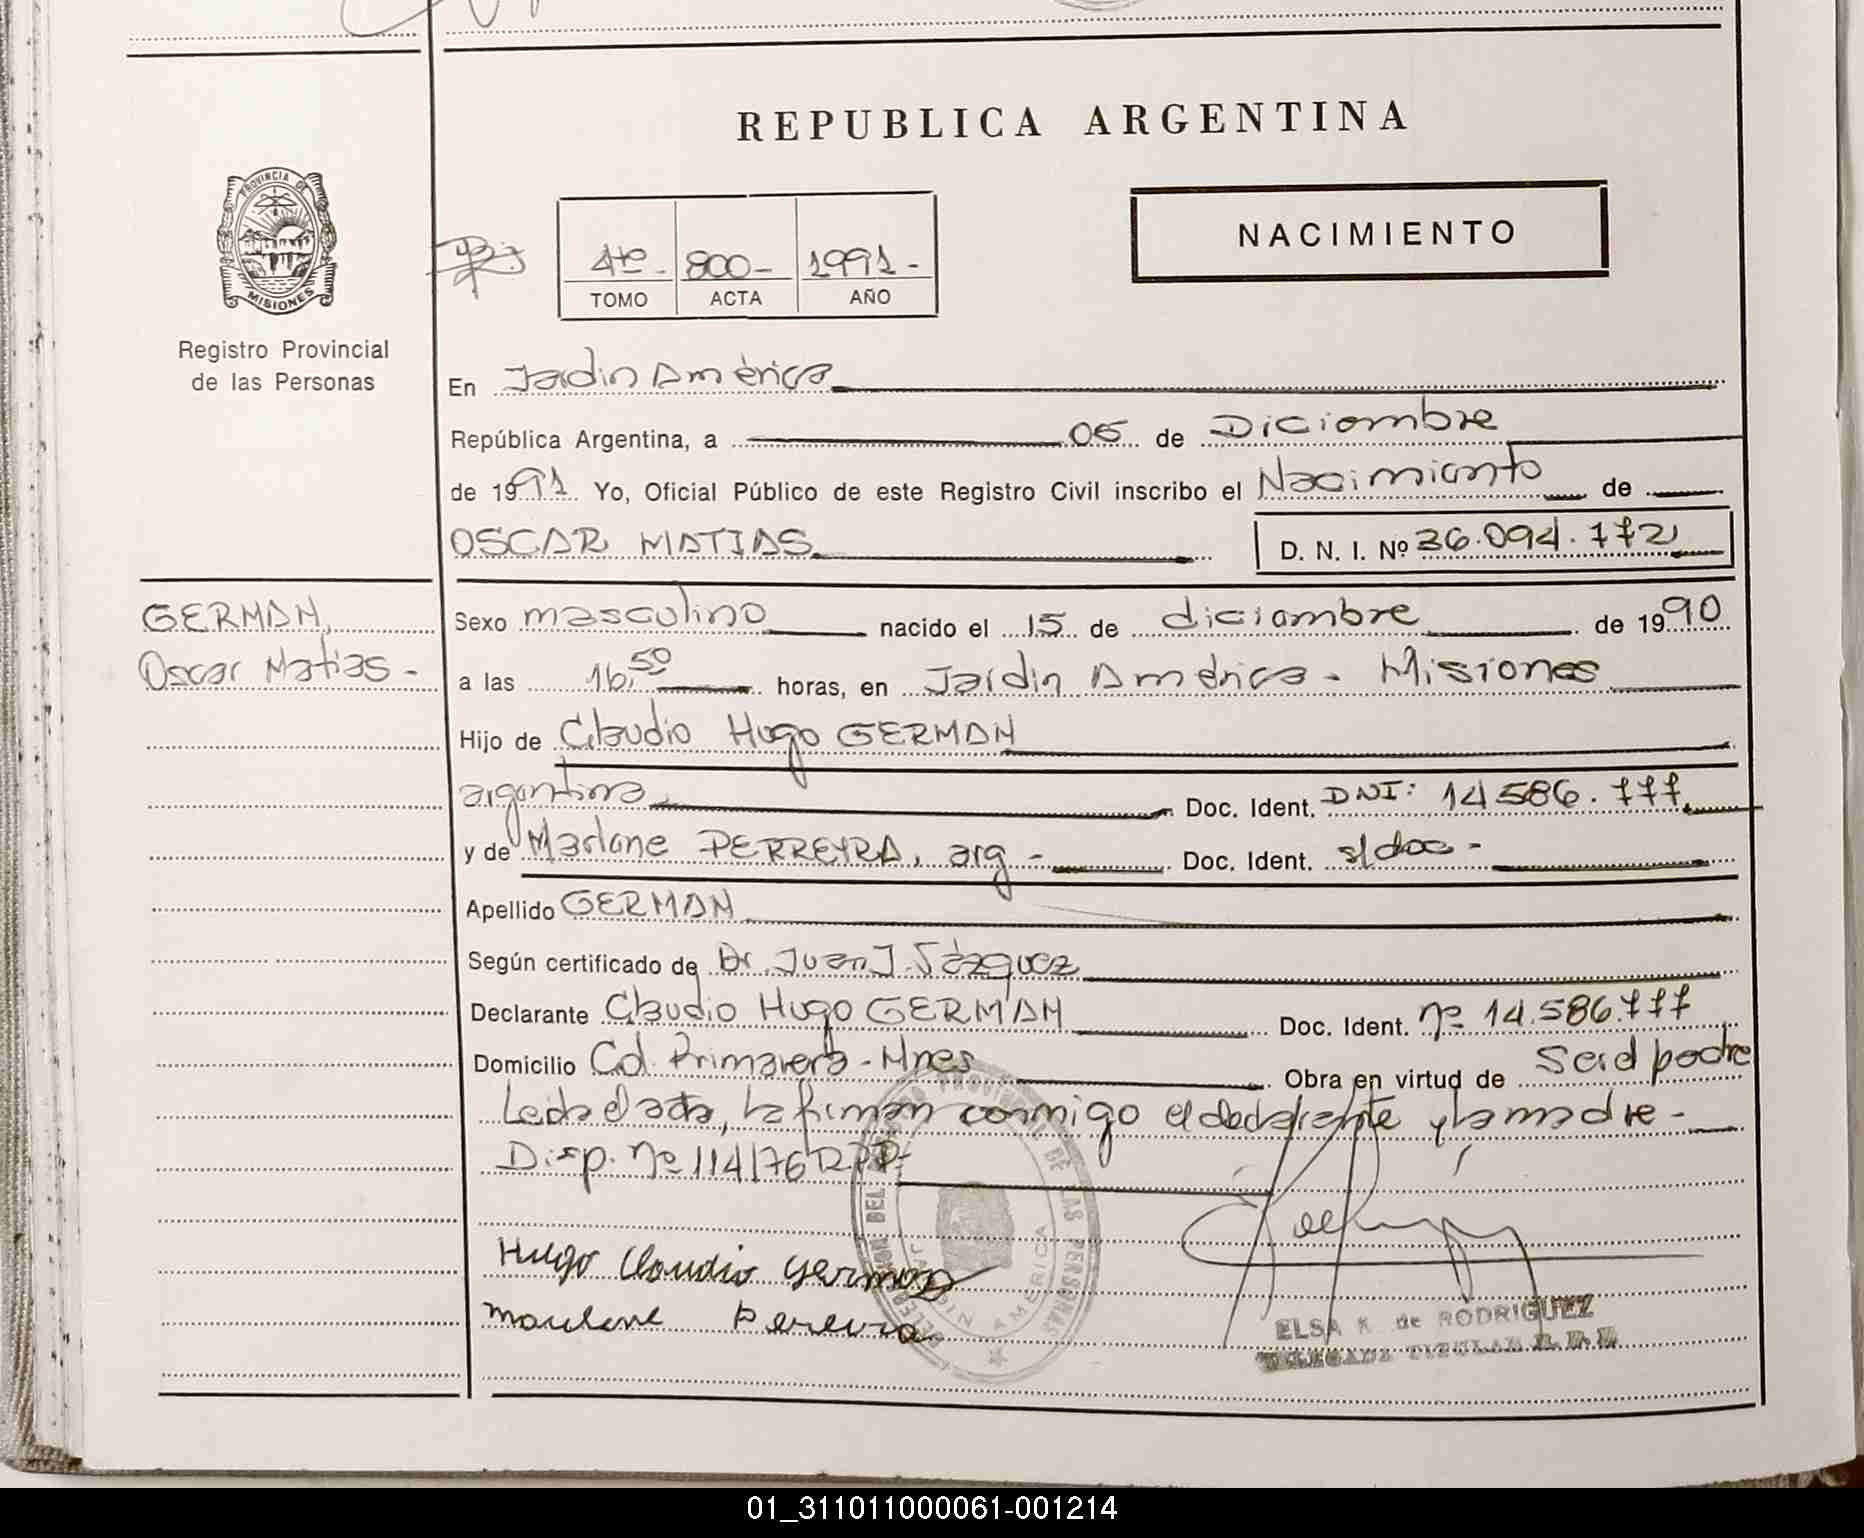 REPUBLICA ARGENTINA
PROVINCIA DE
MISIONES
Registro Provincial
de las Personas
4to - 800 - 1991 -
TOMO ACTA AÑO
NACIMIENTO
En Jardin América
República Argentina, a 05 de Diciembre
de 1991 Yo, Oficial Público de este Registro Civil inscribo el Nacimiento de
OSCAR MATIAS D. N. I. Nº 36.094.772
GERMAN,
Oscar Matias -
Sexo masculino nacido el 15 de diciembre de 1990
a las 16,50 horas, en Jardin América - Misiones
Hijo de Claudio Hugo GERMAN
argentino Doc. Ident. DNI: 14.586.777
y de Marlene PERREYRA, arg - Doc. Ident. s/doc -
Apellido GERMAN
Según certificado de Dr. Juan J. Vázquez
Declarante Claudio Hugo GERMAN Doc. Ident. nº 14.586.777
Domicilio Cd. Primavera - Mnes Obra en virtud de Ser el padre
Leida el acta, la firman conmigo el declarante y la madre -
Disp. nº 114/76 RPP -
Hugo Claudio German
Marlene Pereira
DELEGACION DEL REGISTRO PROVINCIAL DE LAS PERSONAS
JARDIN AMERICA
ELSA K de RODRIGUEZ
DELEGADA TITULAR R. P. P.
01_311011000061-001214